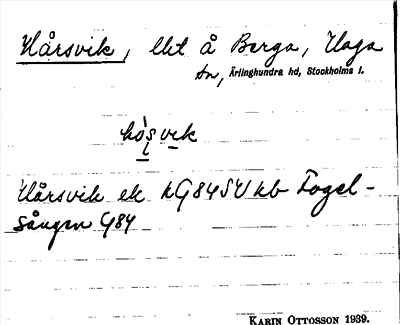 Hårsvik, lht å Berga, Haga
sn, Ärlinghundra hd, Stockholms l.
hòsvik
Hårsvik ek hG84SV kb Fogel-
sången G84
KARIN OTTOSSON 1939.